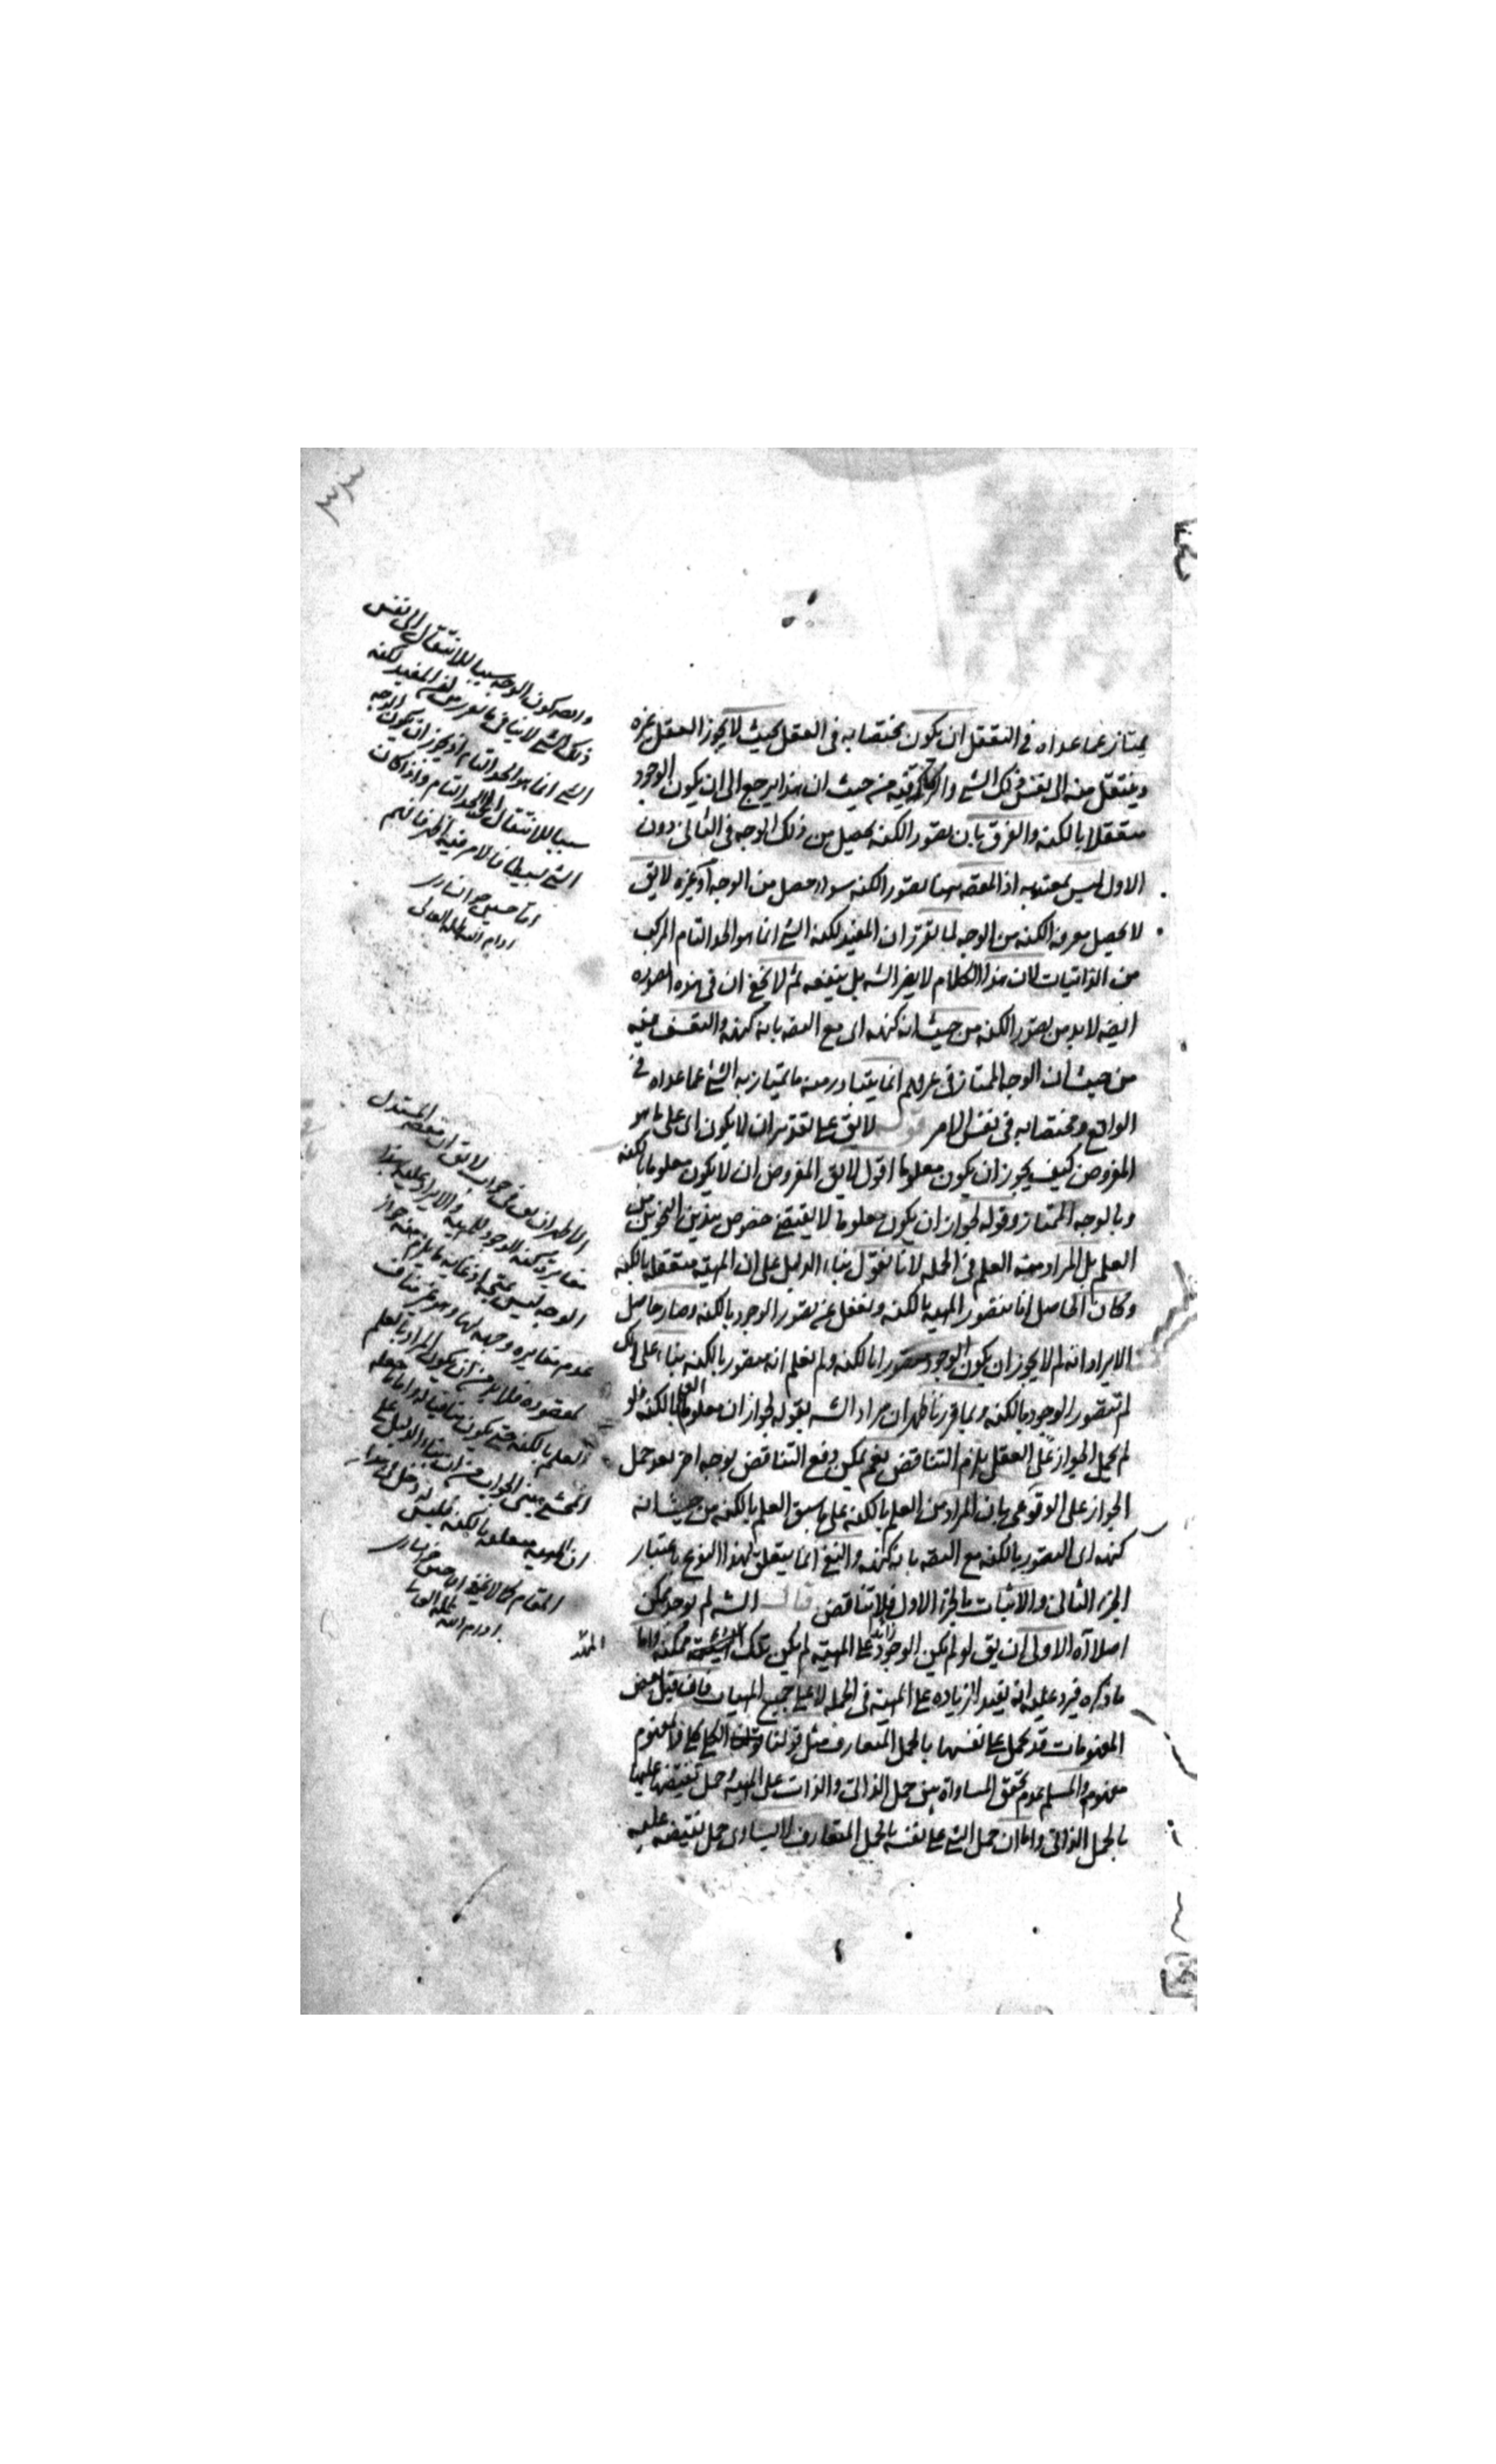 يمتاز عما عداه في التعقل ان يكون مختصا به في العقل بحيث لا يجوز العقل غيره
وينتقل منه الى نفس ذلك الشي من حيث ان هذا يرجع الى ان يكون الوجود
متعقلا بالكنه والفرق بان تصور الكنه يحصل من ذلك الوجه في الثاني دون
الاول ليس بمعتد به اذ المقصد ههنا تصور الكنه سواء حصل من الوجه او غيره لا يق
لا يحصل معرفة الكنه من الوجه لما تقرر ان المفيد لكنه الشي انما هو الحد التام المركب
من الذاتيات لان هذا الكلام لا يضر الشه بل ينفعه ثم لا يخفى ان في هذه الصوره
ايضه لا بد من تصور الكنه من حيث انه كنهه اى مع التصه بانه كنهه والتعسف فيه
من حيث ان الوجه الممتاز في عرفهم انما يتبادر منه ما يمتاز به الشي عما عداه في
الواقع ومختصا به في نفس الامر قوله لا يق على تقدير ان لا يكون اى على ما هو
المفروض كيف يجوز ان يكون معلوما اقول لا يق المفروض ان لا يكون معلوما بالكنه
وبالوجه الممتاز وقوله لجواز ان يكون معلوما لا يقتضى خصوص هذين النحوين من
العلم بل المراد منه العلم في الجمله لانا نقول بناء الدليل على ان المهيه متعقله بالكنه
وكان الحاصل انا نتصور المهيه بالكنه ونغفل عن تصور الوجود بالكنه وصار حاصل
الايراد انه لم لا يجوز ان يكون الوجود متصورا بالكنه ولم نعلم انه متصور بالكنه بناء على انك
لم تتصور الوجود بالكنه وبما قررنا ظهر ان مراد الشه بقوله لجواز ان معلوما بالكنه فلو
لم يحمل الجواز على العقل يلزم التناقض نعم يمكن دفع التناقض بوجه اخر بعد حمل
الجواز على الوقوعى بان المراد من العلم بالكنه على ما سبق العلم بالكنه من حيث انه
كنهه اى التصور بالكنه مع التصه بانه كنهه والنفي انما يتعلق بهذا النوع باعتبار
الجزء الثاني والاثبات بالجزء الاول فلا تناقض قال الشه لم يوجد ممكن
اصلا آه الاولى ان يق لو لم يكن الوجود زائدا على المهيه لم يكن تلك ممكنه واما
ما ذكره فيرد عليه انه يفيد الزياده على المهيه في الجمله لا على جميع المهيات فان قيل بعض
المفهومات قد يحمل على نفسها بالحمل المتعارف مثل قولنا الكلي كلي والمفهوم
مفهوم والمسلم عدم تحقق المساواة بين حمل الذاتى والذات على المهيه وحمل نقيضها عليها
بالحمل الذاتى واما ان حمل الشي على نفسه بالحمل المتعارف لا يساوى حمل نقيضه عليه
كون الوجه سببا للانتقال الى نفس
ذلك الشي لا ينافي ما تقرر من ان المفيد لكنه
الشي انما هو الحد التام اذ يجوز ان يكون الوجه
سببا للانتقال الى الحد التام واذا كان
الشي بسيطا فالامر فيه اظهر فافهم
اقا حسين خوانسارى
ادام الله ظله العالى
مغايرة كنه الوجود للمهيه والايراد عليه بهذا
الوجه ليس بمتجه اذ غايه ما يلزم منه جواز
عدم مغايره وجهه لها وهو غير مناف
لمقصوده فلا بد من ان يكون المراد بالعلم
العلم بالكنه حتى يكون منافيا له واما ما جعله
المحشى مبنى الجواب من ان بناء الدليل على
ان المهيه متعقله بالكنه فليس له دخل في هذا
المقام كما لا يخفى اقا حسين خوانسارى
ادام الله ظله العالى